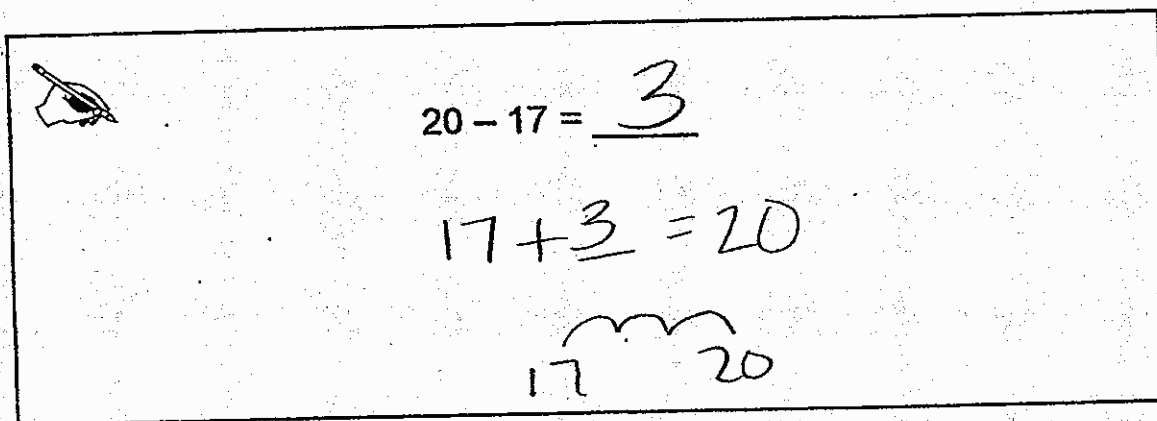 20 – 17 = 3
17 + 3 = 20
17 20